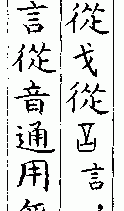 從戈從言，
言從音通用